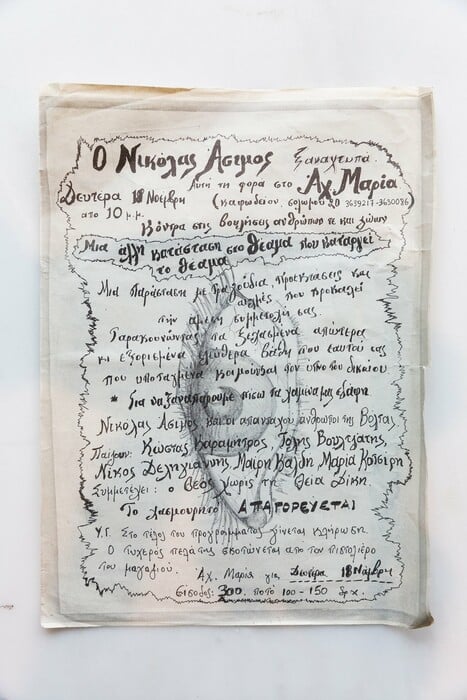 Ο Νικόλας Άσιμος Ξαναχτυπά.
Αυτή τη φορά στο Αχ, Μαρία
Δευτέρα 18 Νοέμβρη
από 10 μ.μ. (καφωδείον, σολωμού 20 3639217-3630086
Κόντρα στις βουλήσεις ανθρώπων τε και ζώων
Μια άλλη κατάσταση στο θέαμα που καταργεί
το θέαμα
Μια Παράσταση με τραγούδια προεκτάσεις και
που προκαλεί
την άμεση συμμετοχή σας.
Ταρακουνώντας τα ξεχασμένα απώτερα
κι εξορισμένα ελεύθερα βάθη του εαυτού σας
που υποταγμένα κοιμούνται τον ύπνο του δικαίου
* Για να ξαναπάρουμε πίσω τα χαμένα μας εδάφη.
Νικόλας Άσιμος και οι απανταχού άνθρωποι της Βόλτας
Παίζουν: Κώστας Καραμήτρος, Τόλης Βουλτζάτης,
Νίκος Δεληγιάννης, Μαίρη Κάλδη, Μαρία Κοτσίρη
Συμμετέχει: ο Θεός χωρίς τη Θεία Δίκη.
Το χασμουρητό ΑΠΑΓΟΡΕΥΕΤΑΙ
Υ.Γ. Στο τέλος του προγράμματος γίνεται κλήρωση.
Ο τυχερός πελάτης σκοτώνεται από τον πιστολιέρο
του μαγαζιού. Αχ. Μαρία για Δευτέρα 18 Νοέμβρη
Είσοδος: 300. ποτό 100-150 δρχ.